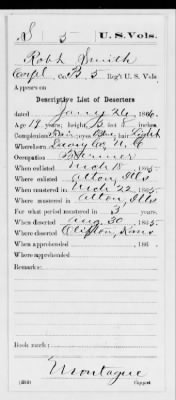 S 5 U.S. Vols.
Robt Smith
Corpl, Co. B 5 Reg't U.S. Vols.
Appears on
Descriptive List of Deserters
dated Jany 26 1866.
Age 19 years; height 5 feet 5 inches
Complexion Fair eyes Blue hair Light
Where born Davy Co, N.C
Occupation Farmer
When enlisted Mch 18 1865
Where enlisted Alton, Ills
When mustered in Mch 22 1865
Where mustered in Alton, Ills
For what period mustered in 3 years.
When deserted Aug 30 1865.
Where deserted Kans
When apprehended , 186 .
Where apprehended
Remarks:
Book mark:
Montague
Copyist.